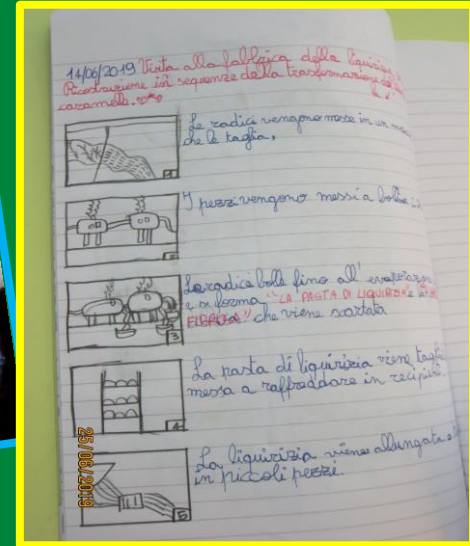 14/06/2019 Visita alla fabbrica della liquirizia
Ricostruzione in sequenze della trasformazione
caramella.
Le radici vengono messe in un
che le taglia.
1
I pezzi vengono messi a bollire
2
La radice bolle fino all'evaporazione
e si forma "LA PASTA DI LIQUIRIZIA" e
che viene scartata
3
La pasta di liquirizia viene
messa a raffreddare in recipienti
4
La liquirizia viene allungata
in piccoli pezzi.
5
25/06/2019